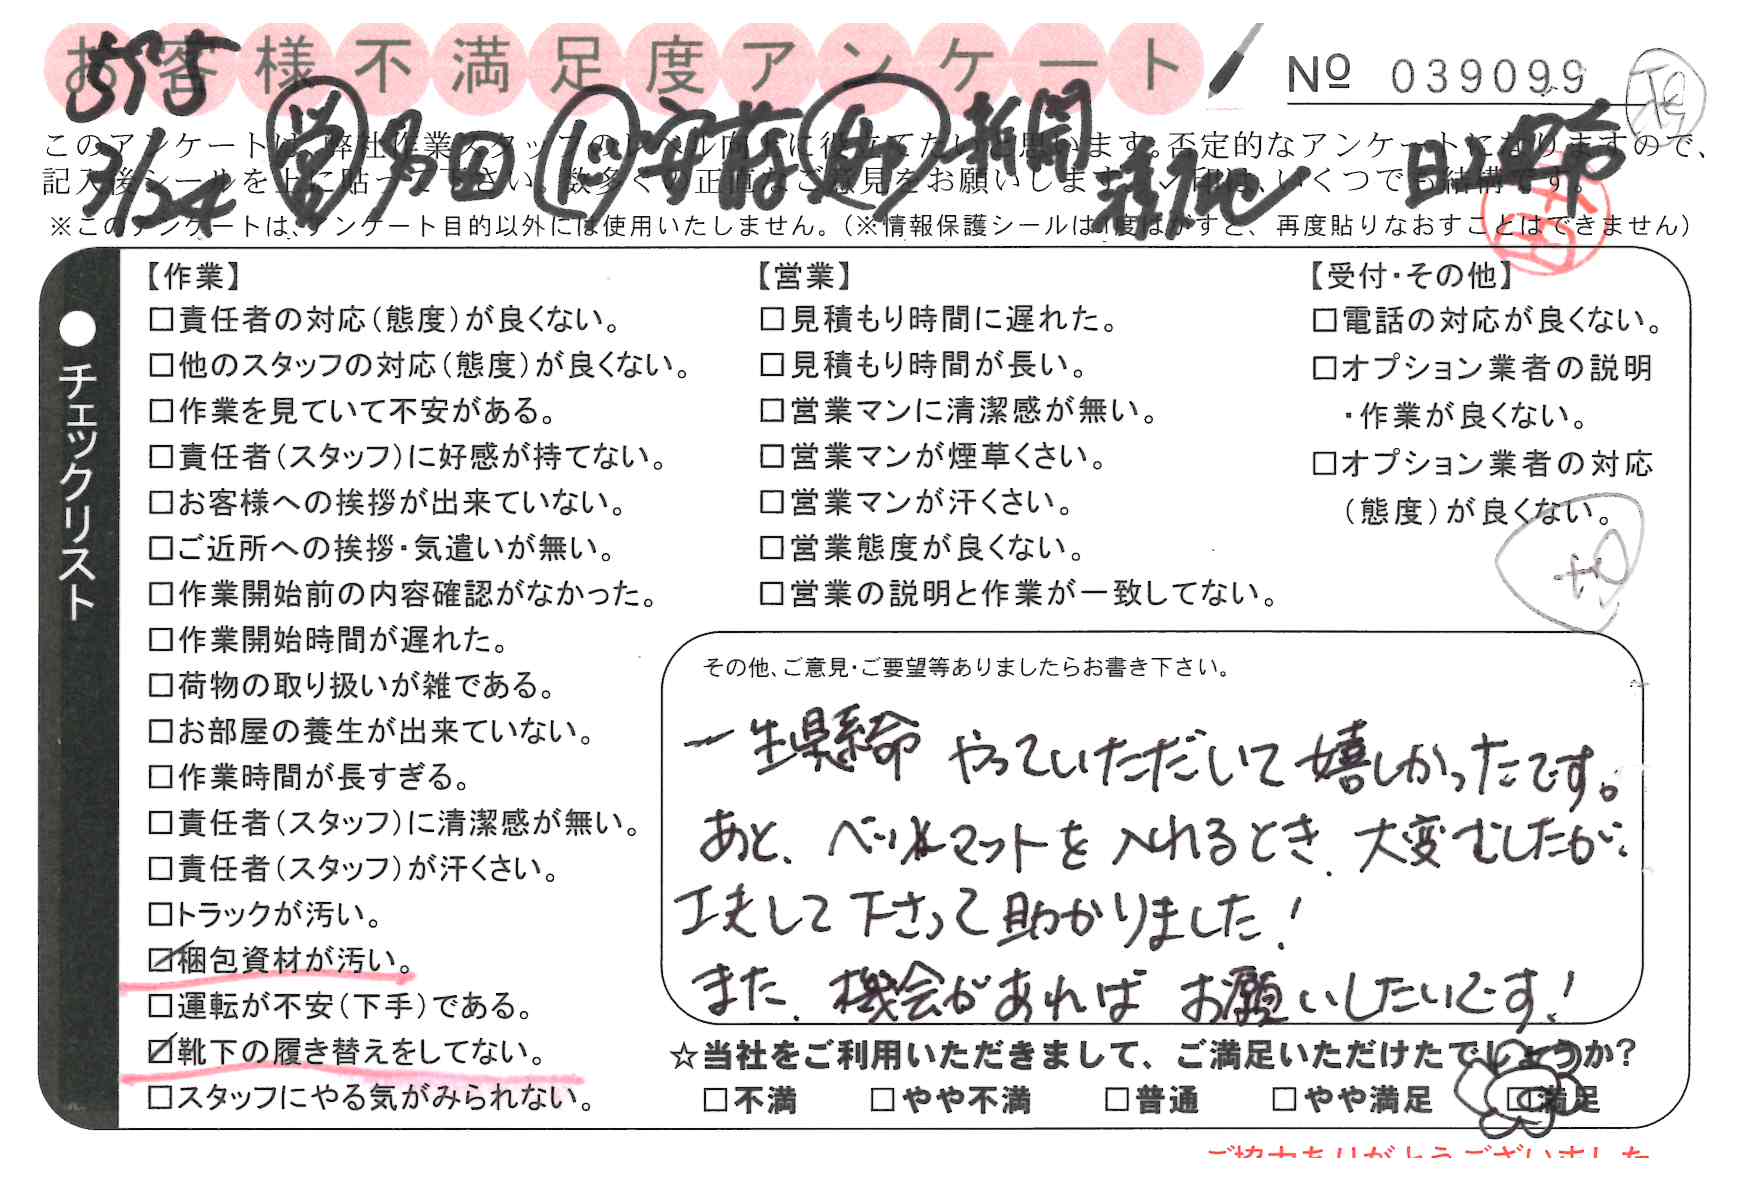 お客様不満足度アンケート
№ 039099
575
3/24 営 多田 安藤 新開 積和 日之出
このアンケートは、弊社作業スタッフのレベル向上に役立てたいと思います。否定的なアンケートになりますので、
記入後シールを上に貼って下さい。数多くの正直なご意見をお願いします。✓印は、いくつでも結構です。
※このアンケートは、アンケート目的以外には使用いたしません。（※情報保護シールは1度はがすと、再度貼りなおすことはできません）
●チェックリスト
【作業】
□責任者の対応（態度）が良くない。
□他のスタッフの対応（態度）が良くない。
□作業を見ていて不安がある。
□責任者（スタッフ）に好感が持てない。
□お客様への挨拶が出来ていない。
□ご近所への挨拶・気遣いが無い。
□作業開始前の内容確認がなかった。
□作業開始時間が遅れた。
□荷物の取り扱いが雑である。
□お部屋の養生が出来ていない。
□作業時間が長すぎる。
□責任者（スタッフ）に清潔感が無い。
□責任者（スタッフ）が汗くさい。
□トラックが汚い。
☑梱包資材が汚い。
□運転が不安（下手）である。
☑靴下の履き替えをしてない。
□スタッフにやる気がみられない。
【営業】
□見積もり時間に遅れた。
□見積もり時間が長い。
□営業マンに清潔感が無い。
□営業マンが煙草くさい。
□営業マンが汗くさい。
□営業態度が良くない。
□営業の説明と作業が一致してない。
【受付・その他】
□電話の対応が良くない。
□オプション業者の説明
・作業が良くない。
□オプション業者の対応
（態度）が良くない。
その他、ご意見・ご要望等ありましたらお書き下さい。
一生県系命 やっていただいて嬉しかったです。
あと、ベッドマットを入れるとき、大変でしたが、
工夫して下さって助かりました！
また、機会があればお願いしたいです！
☆当社をご利用いただきまして、ご満足いただけたでしょうか？
□不満 □やや不満 □普通 □やや満足 □満足
ご協力ありがとうございました